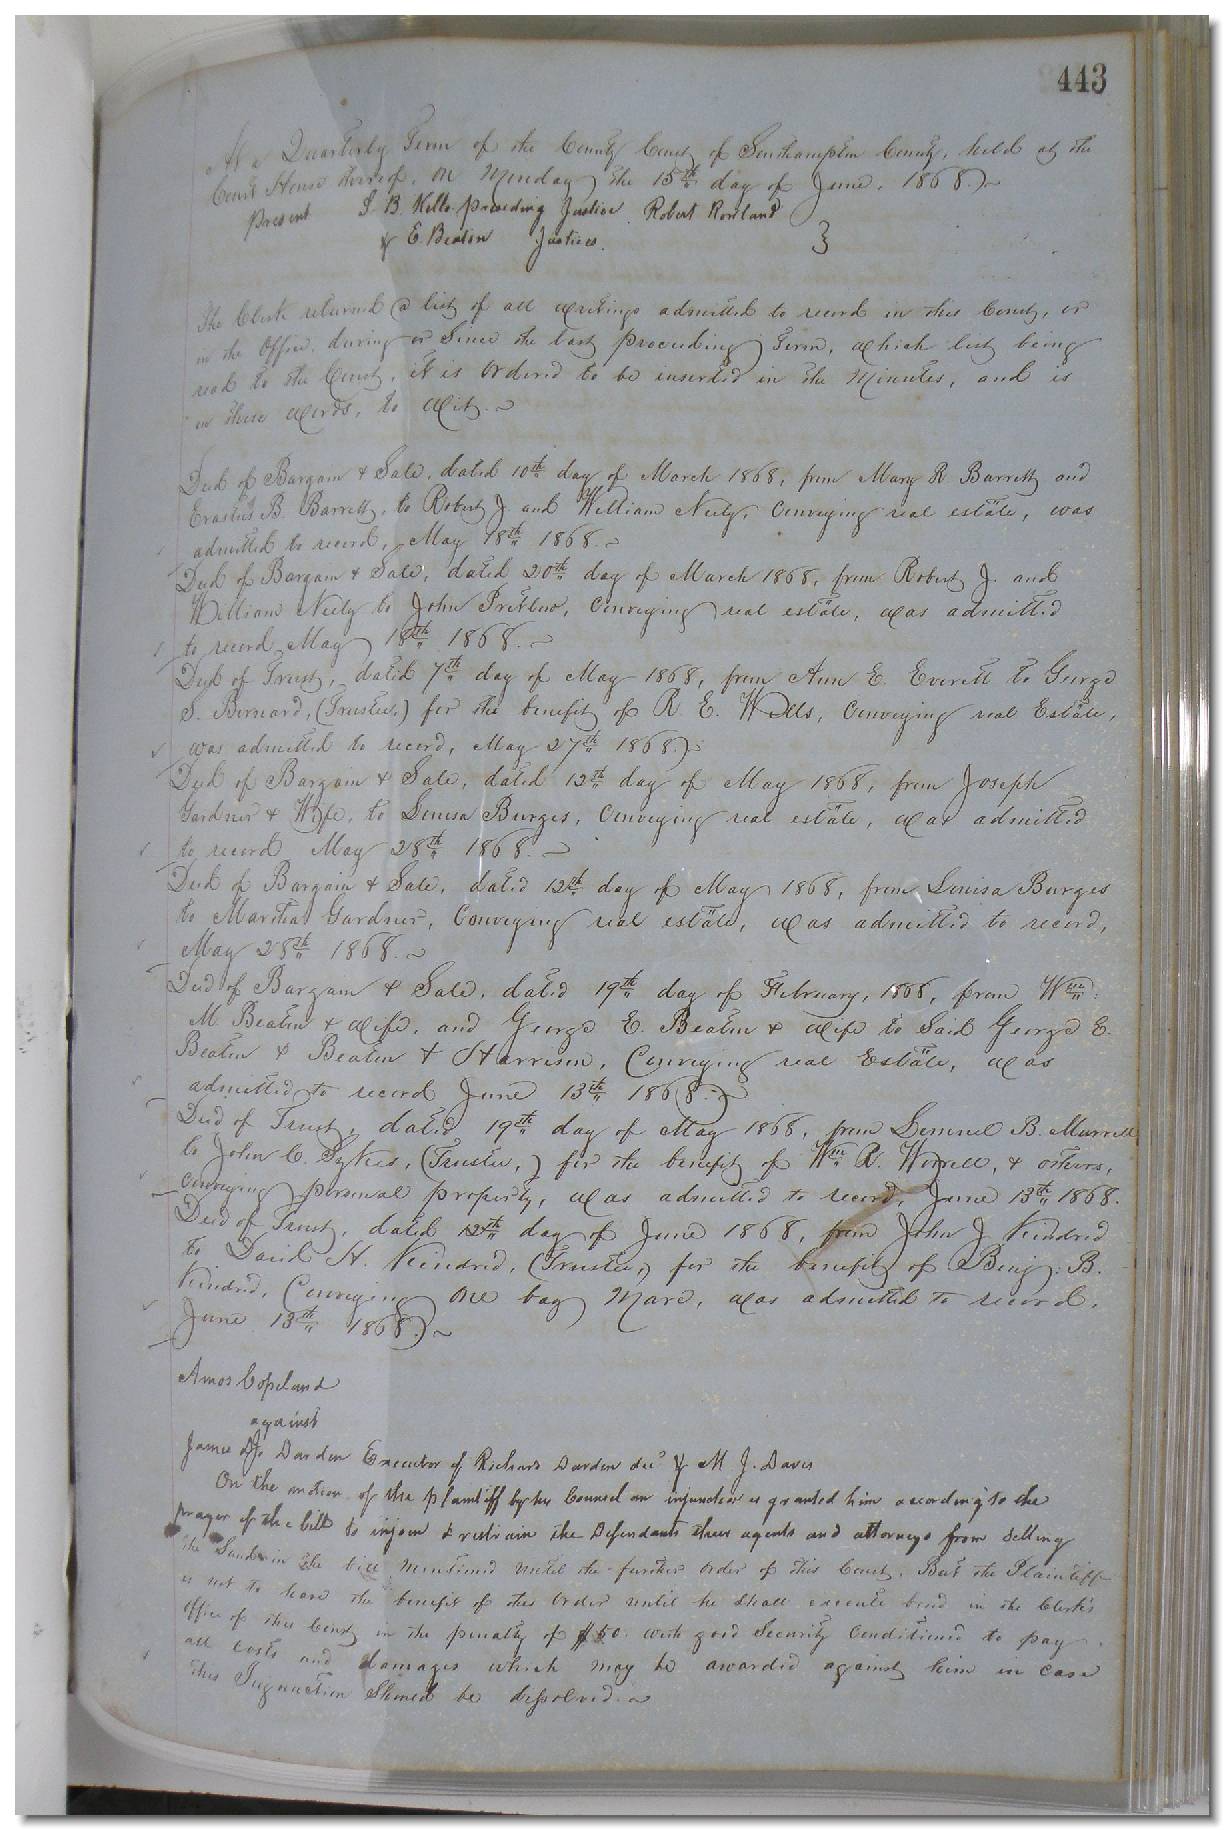 443
At a Quarterly Term of the County Court of Southampton County, held at the
Court House thereof, on Monday the 15th day of June, 1868.
Present S. B. Kello presiding Justice Robert Rowland
& E. Beaton Justices.
The Clerk returned a list of all writings admitted to record in this Court, or
in the Office, during or since the last preceeding Term, which list being
read to the Court, it is ordered to be inserted in the Minutes, and is
in these words, to wit.
Deed of Bargain & Sale, dated 10th day of March 1868, from Mary R Barrett and
Erastus B. Barrett, to Robert J. and William Neely, Conveying real estate, was
admitted to record, May 18th 1868.
Deed of Bargain & Sale, dated 20th day of March 1868, from Robert J. and
William Neely to John Pretlow, Conveying real estate, was admitted
to record May 18th 1868.
Deed of Trust, dated 7th day of May 1868, from Ann E. Everett to George
S. Bernard, (Trustee,) for the benefit of R. E. Wells, Conveying real Estate,
was admitted to record, May 27th 1868.
Deed of Bargain & Sale, dated 12th day of May 1868, from Joseph
Gardner & Wife, to Louisa Burges, Conveying real estate, was admitted
to record May 28th 1868.
Deed of Bargain & Sale, dated 12th day of May 1868, from Louisa Burges
to Martha Gardner, Conveying real estate, was admitted to record,
May 28th 1868.
Deed of Bargain & Sale, dated 19th day of February, 1868, from Wm
M. Beaton & wife, and George E. Beaton & wife to Said George E.
Beaton & Beaton & Harrison, Conveying real Estate, was
admitted to record June 13th 1868.
Deed of Trust, dated 19th day of May 1868, from Lemuel B. Murrell
to John C. Sykes, (Trustee,) for the benefit of Wm R. Worrell, & others,
conveying personal property, was admitted to record, June 13th 1868.
Deed of Trust, dated 12th day of June 1868, from John J Kindred
to David H. Kindred, (Trustee,) for the benefit of Benj: B.
Kindred, Conveying one bay Mare, was admitted to record,
June 13th 1868.
Amos Copeland
against
James D. Darden Executor of Richard Darden decd & M J. Davis
On the motion of the plaintiff by his Counsel an injunction is granted him according to the
prayer of the bill to injoin & restrain the Defendants their agents and attorneys from selling
the Land in the bill mentioned until the further order of this Court. But the Plaintiff
is not to have the benefit of this Order until he shall execute bond in the Clerk's
office of this Court in the penalty of $50 with good Security Conditioned to pay
all costs and damages which may be awarded against him in case
this Injunction Should be dissolved.